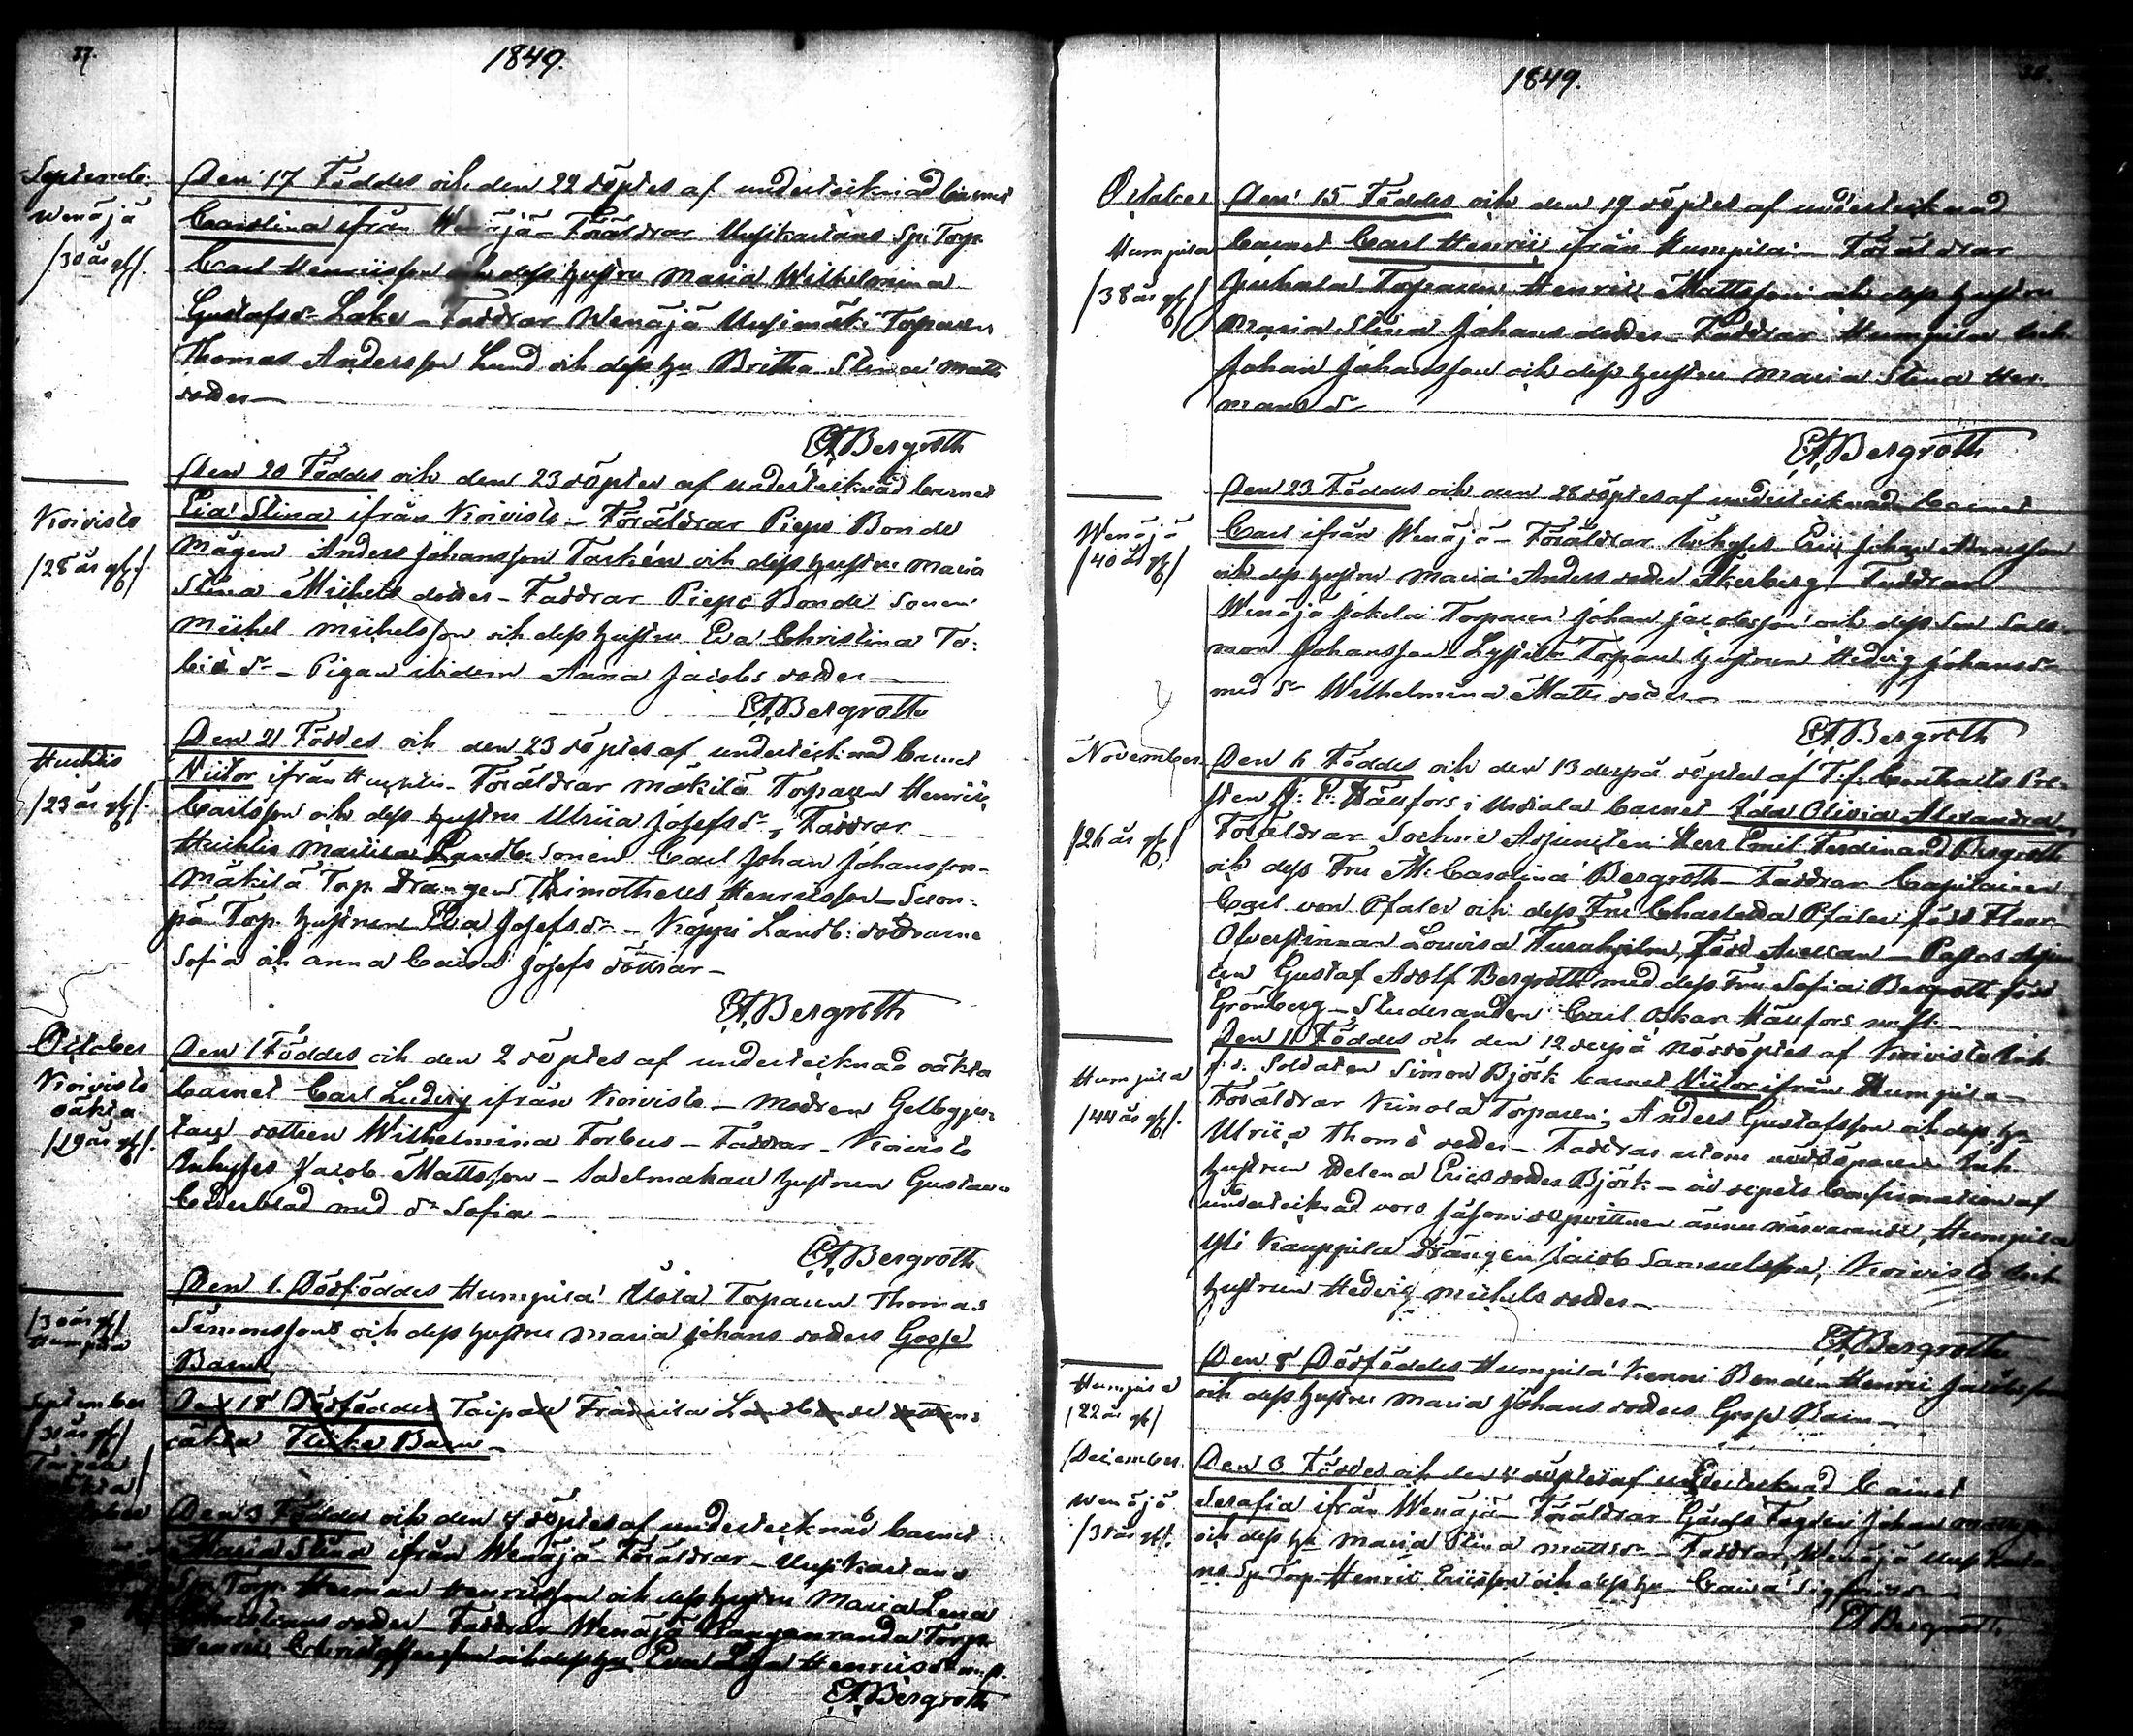 37.
1849.
Septemb.
Wenäjä
/30 år gl/.
Den 17 Föddes och den 22 döptes af undertecknad barnet
Carolina ifrån Wenäjä - Föräldrar Uusikartano Sp: Torp.
Carl Henricsson och dess hustru Maria Wilhelmina
Gustafsdr Lake - Faddrar Wenäjä Uusimäki Torparen
Thomas Andersson Lund och dess hu Britha Stina Matts
dotter -
EFBergroth
Koivisto
/28 år gl/.
Den 20 Föddes och den 23 döptes af undertecknad barnet
Eva Stina ifrån Koivisto - Föräldrar Piepo Bonde
mågen Anders Johansson Tarkén och dess hustru Maria
Stina Michels dotter - Faddrar Piepo Bonde Sonen
Michel Michelsson och dess hustru Eva Christina To-
bias dr - Pigan ibidem Anna Jacobs dotter -
EFBergroth
Huhtis
/23 år gl/.
Den 21 Föddes och den 23 döptes af undertecknad barnet
Victor ifrån Huhtis - Föräldrar Mäkilä Torparen Henric
Carlsson och dess hustru Ulrica Josefsdr - Faddrar
Huhtis Landb: Sonen Carl Johan Johansson -
Mäkilä Torp. Drängen Thimotheus Henricsson - Suon-
pää Torp. hustrun Eva Josefsdr - Köppi Landb: döttrarne
Sofia och Anna Caisa Josefs döttrar -
EFBergroth
October
Koivisto
oäkta
/19 år gl/.
Den 1 Föddes och den 2 döptes af undertecknad oäkta
barnet Carl Ludvig ifrån Koivisto - Modren Gelbgju-
tare dottren Wilhelmina Forbus - Faddrar - Koivisto
Inhyses Jacob Mattsson - Sadelmakare hustrun Gustava
Cederblad med dr Sofia -
EFBergroth
/30 år gl/
Humpila
Den 1. Dödföddes Humpila Torparen Thomas
Simonssons och dess hustru Maria Johans dotters Gosse
Barn
September
/31 år gl/
Den 18 Dödföddes Taipale Landbonde dottrens
oäkta Flicke Barn -
Den 3 Föddes och den 4 döptes af undertecknad barnet
Maria Stina ifrån Wenäjä - Föräldrar - Uusikartano
Sp: Torp. Herman Henricsson och dess hustru Maria Lena
Christians dotter - Faddrar Wenäjä Torp.
Henric Christoffersson och dess hu Eva Lisa Henricsdr
EFBergroth
38.
1849.
October
Humpila
/38 år gl/
Den 15 Föddes och den 19 döptes af undertecknad
barnet Carl Henric ifrån Humpila - Föräldrar
Juhala Torparen Henric Mattsson och dess hustru
Maria Stina Johans dotter - Faddrar Humpila Inh.
Johan Johansson och dess hustru Maria Stina Her-
mans dr
EFBergroth
Wenäjä
/40 år gl/
Den 23 Föddes och den 28 döptes af undertecknad barnet
Carl ifrån Wenäjä - Föräldrar Inhyses Eric Johan Adamsson
och dess hustru Maria Anders dotter Åkerberg - Faddrar
Wenäjä Jokela Torparen Johan Jacobsson och dess son Salo-
mon Johansson Torpare hustrun Hedvig Johansdr
med dr Wilhelmina Matts dotter -
EFBergroth
November
/26 år gl/
Den 6 Föddes och den 13 derpå döptes af T.f. Contracts Pro-
sten J: P: Hällfors i Urdiala barnet Ida Olivia Alexandra
Föräldrar Sockne Adjuncten Herr Emil Ferdinand Bergroth
och dess Fru M: Carolina Bergroth - Faddrar Capitainen
Carl von Pfaler och dess Fru Charlotta Pfaler född
Öfverstinnan Lovisa Furuhjelm, född - Pastors Adjunc-
ten Gustaf Adolf Bergroth med dess Fru Sofia Bergroth född
Grönberg - Studeranden Carl Oskar Hällfors m.fl. -
Humpila
/44 år gl/.
Den 11 Föddes och den 12 derpå nöddöptes af Koivisto Inh
f.d. Soldaten Simon Björk barnet Victor ifrån Humpila -
Föräldrar Torparen Anders Gustafsson och dess hu
Ulrica Thomæ dotter - Faddrar utom nöddöparen Inh.
hustrun Helena Ericsdotter Björk - vid dopets Confirmation af
undertecknad voro såsom dopvittnen ännu närvarande, Humpila
Yli Kauppila Drängen Jacob Samuelsson, Koivisto Inh
hustrun Hedvig Michels dotter -
EFBergroth
Humpila
/22 år gl/
Den 8 Dödföddes Humpila Bonden Henric
och dess hustru Maria Johans dotters Gosse Barn -
December.
Wenäjä
/31 år gl/.
Den 3 Föddes och den döptes af undertecknad barnet
Serafia ifrån Wenäjä - Föräldrar Gårds Fogden Johan
och dess hu Maria Stina Mattsdr - Faddrar Wenäjä Uusikarta-
no Sp: Torp. Henric Ericsson och dess hu Caisa
EFBergroth